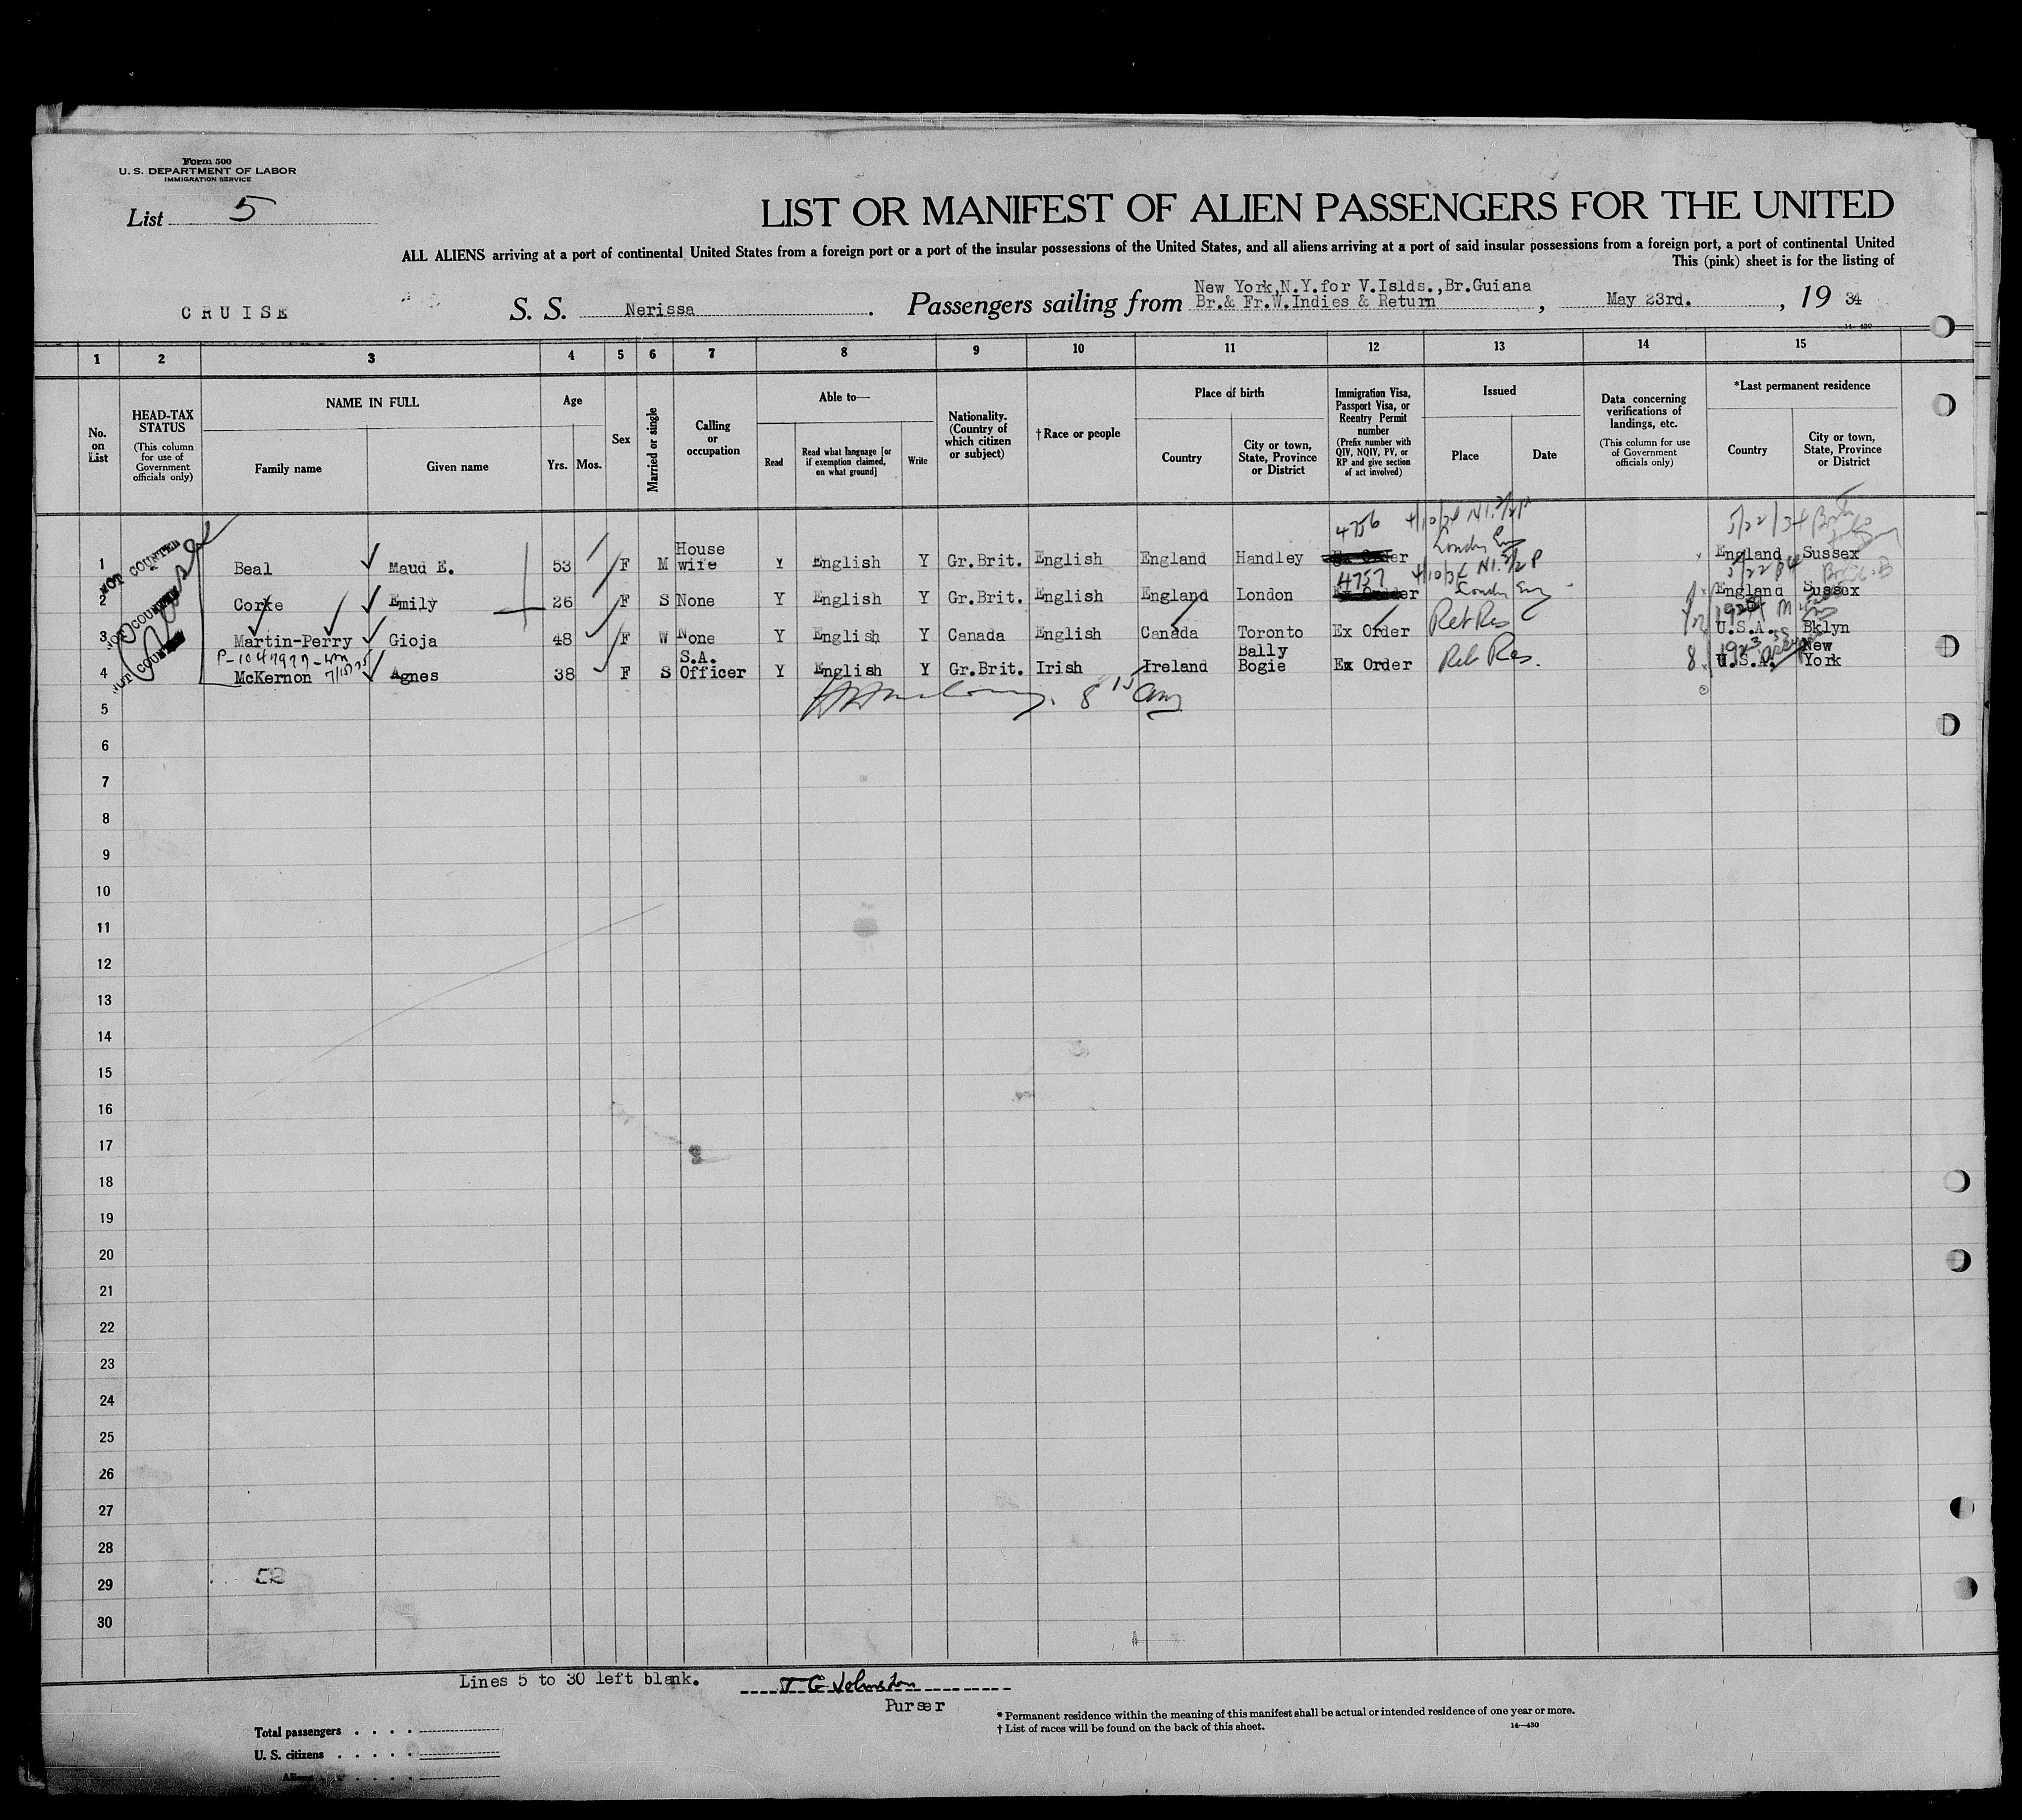 Form 500
U. S. DEPARTMENT OF LABOR
IMMIGRATION SERVICE
List 5
LIST OR MANIFEST OF ALIEN PASSENGERS FOR THE UNITED
ALL ALIENS arriving at a port of continental United States from a foreign port or a port of the insular possessions of the United States, and all aliens arriving at a port of said insular possessions from a foreign port, a port of continental United
This (pink) sheet is for the listing of
CRUISE S. S. Nerissa. Passengers sailing from New York,N.Y.for V.Islds.,Br.Guiana
Br.& Fr.W.Indies & Return, May 23rd., 19 34
14-430
1 2 3 4 5 6 7 8 9 10 11 12 13 14 15
No. on List
HEAD-TAX STATUS
(This column for use of Government officials only)
NAME IN FULL
Family name Given name
Age
Yrs. Mos.
Sex
Married or single
Calling or occupation
Able to—
Read
Read what language [or if exemption claimed, on what ground]
Write
Nationality. (Country of which citizen or subject)
†Race or people
Place of birth
Country
City or town, State, Province or District
Immigration Visa, Passport Visa, or Reentry Permit number
(Prefix number with QIV, NQIV, PV, or RP and give section of act involved)
Issued
Place Date
Data concerning verifications of landings, etc.
(This column for use of Government officials only)
*Last permanent residence
Country
City or town, State, Province or District
4756 4/10/34
5/22/34
NOT COUNTED
1 Beal Maud E. 53 F M House wife Y English Y Gr.Brit. English England Handley London England Sussex
4757 4/10/34
5/22/34
NOT COUNTED
2 Corke Emily 26 F S None Y English Y Gr.Brit. English England London London England Sussex
3 Martin-Perry Gioja 48 F W None Y English Y Canada English Canada Toronto Ex Order Ret Res U.S.A. Bklyn
P-1047977
NOT COUNTED
4 McKernon Agnes 38 F S S.A. Officer Y English Y Gr.Brit. Irish Ireland Bally Bogie Ex Order Ret Res. 8 1923 U.S.A. New York
8 15 am
5
6
7
8
9
10
11
12
13
14
15
16
17
18
19
20
21
22
23
24
25
26
27
28
29
30
Lines 5 to 30 left blank. J G Johnston
Purser
Total passengers
U. S. citizens
Aliens
* Permanent residence within the meaning of this manifest shall be actual or intended residence of one year or more.
† List of races will be found on the back of this sheet. 14—430